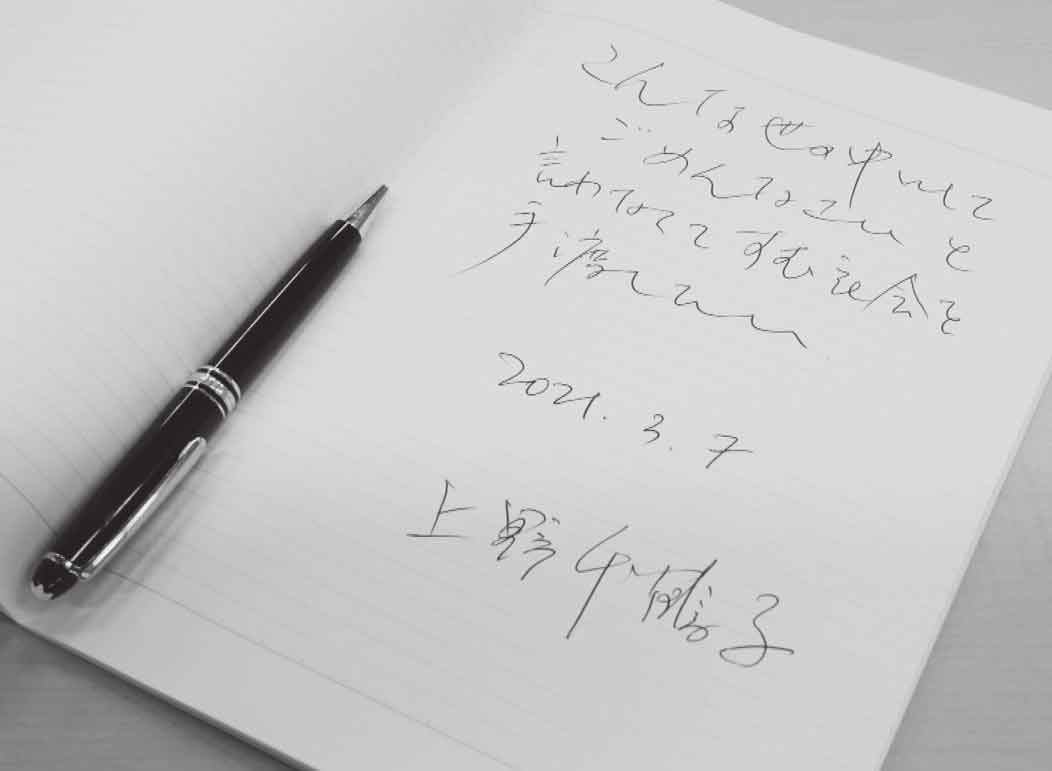 こんな世の中にして
ごめんなさい と
言わなくてすむ社会を
手渡したい
2021. 3. 7
上野千鶴子